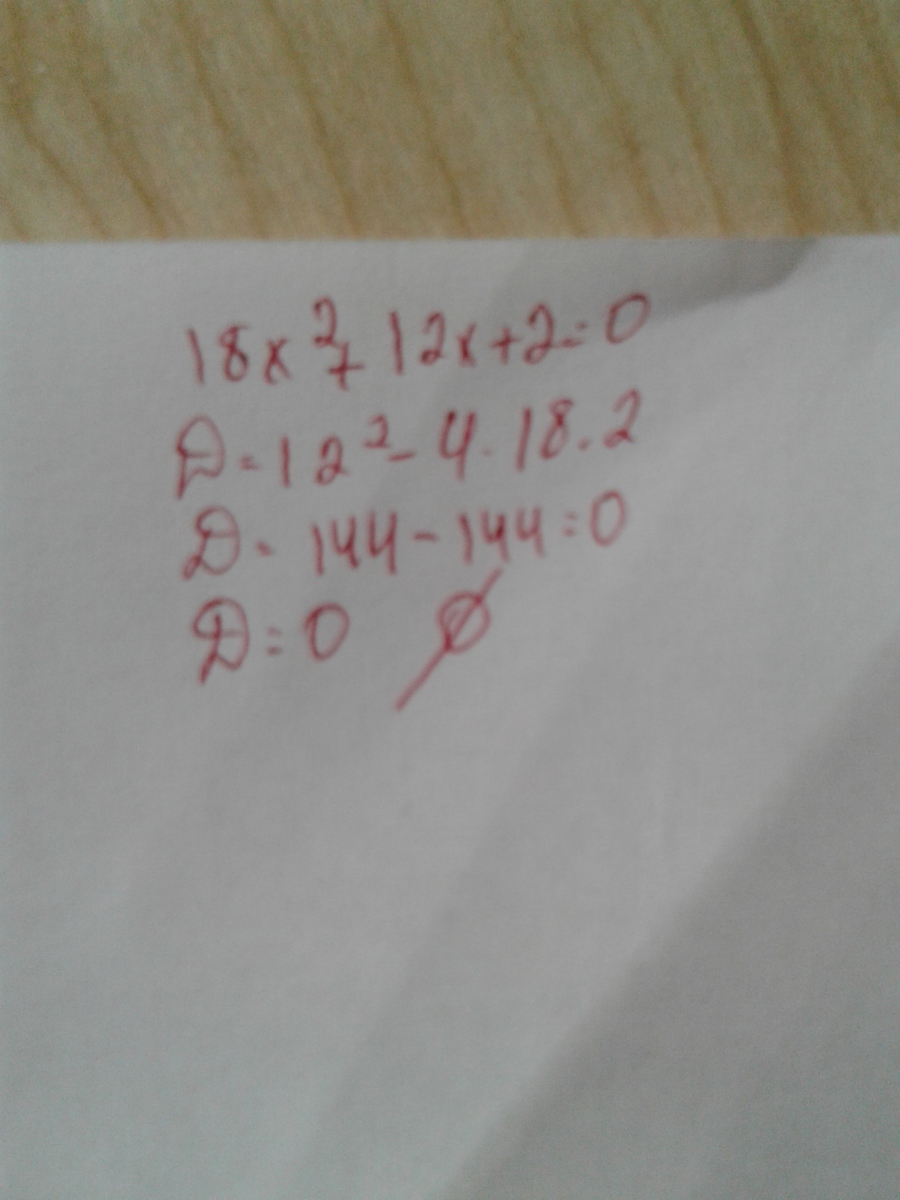 18x²+12x+2=0
D=12²-4·18·2
D=144-144=0
D=0 ∅